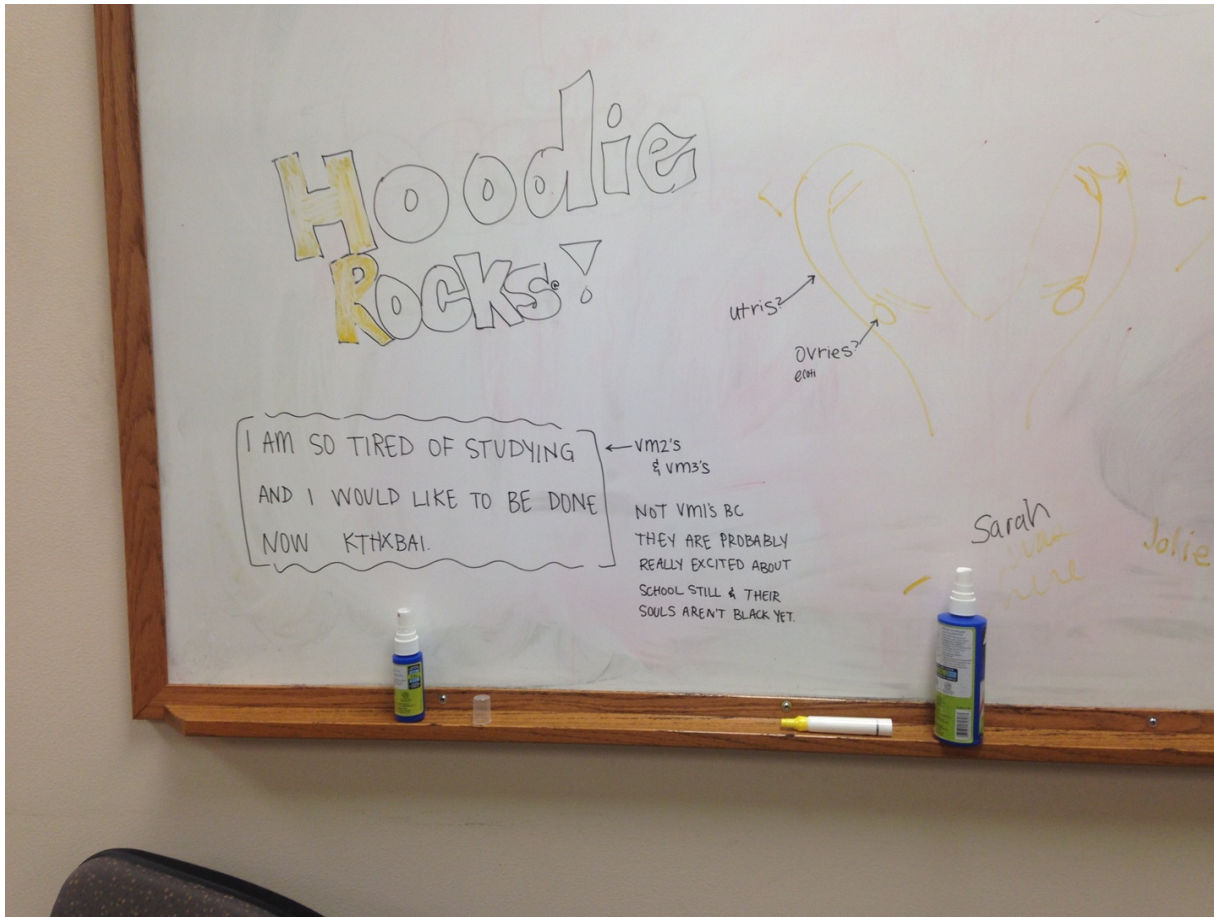 Hoodie
Rocks!
utris?
ovries?
I AM SO TIRED OF STUDYING
AND I WOULD LIKE TO BE DONE
NOW KTHXBAI.
← VM2's
& VM3's
NOT VM1's BC
THEY ARE PROBABLY
REALLY EXCITED ABOUT
SCHOOL STILL & THEIR
SOULS AREN'T BLACK YET.
Sarah
was
here
Jolie